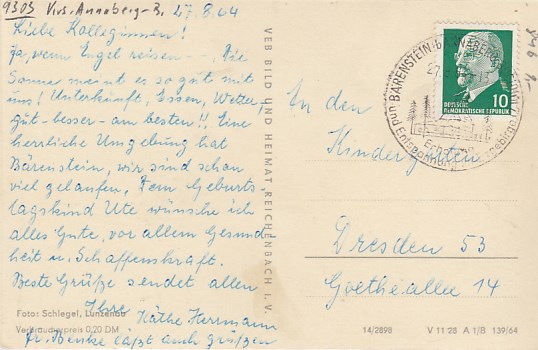 9303 Kreis Annaberg-B. 27.8.64
Liebe Kolleginnen!
Ja, wenn Engel reisen - Die
Sonne meint es so gut mit
uns! Unterkunft, Essen, Wetter,
gut - besser - am besten!! Eine
herrliche Umgebung hat
Bärenstein, wir sind schon
viel gelaufen. Dem Geburts
tagskind Ute wünsche ich
alles Gute, vor allem Gesund
heit u. Schaffenskraft.
Beste Grüße sendet allen
Ihre
Käthe Herrmann
Fr. Benke läßt auch grüßen
Foto: Schlegel, Lunzenau
Verbraucherpreis 0,20 DM
VEB BILD UND HEIMAT REICHENBACH i. V.
BÄRENSTEIN
Erholung
und Entspannung
10
DEUTSCHE
DEMOKRATISCHE REPUBLIK
In den
Kindergarten
Dresden 53
Goethealle 14
14/2898 V 11 28 A 1/B 139/64